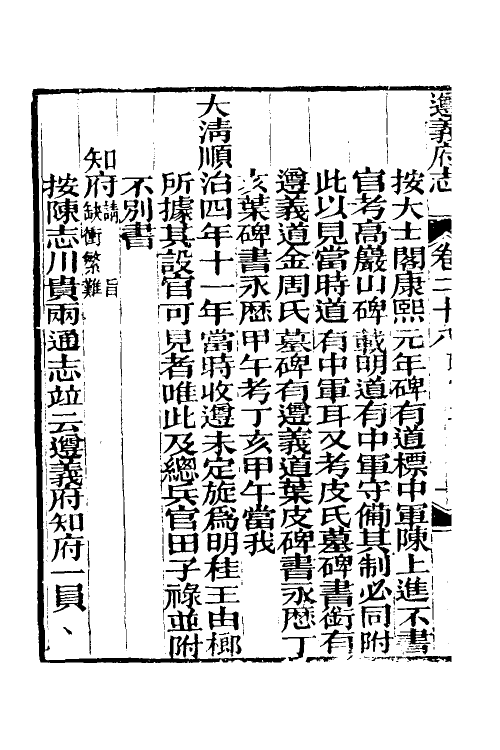 遵義府志 卷二十八
按大士閣康熙元年碑有道標中軍陳上進不書
官考高巖山碑載明道有中軍守備其制必同附
此以見當時道有中軍耳又考皮氏墓碑書銜有
遵義道金周氏墓碑有遵義道葉皮碑書永厯丁
亥葉碑書永厯甲午考丁亥甲午當我
大清順治四年十一年當時收遵未定旋爲明桂王由榔
所據其設官可見者唯此及總兵官田子祿並附
不別書
知府請旨缺衝繁難
按陳志川貴兩通志竝云遵義府知府一員、